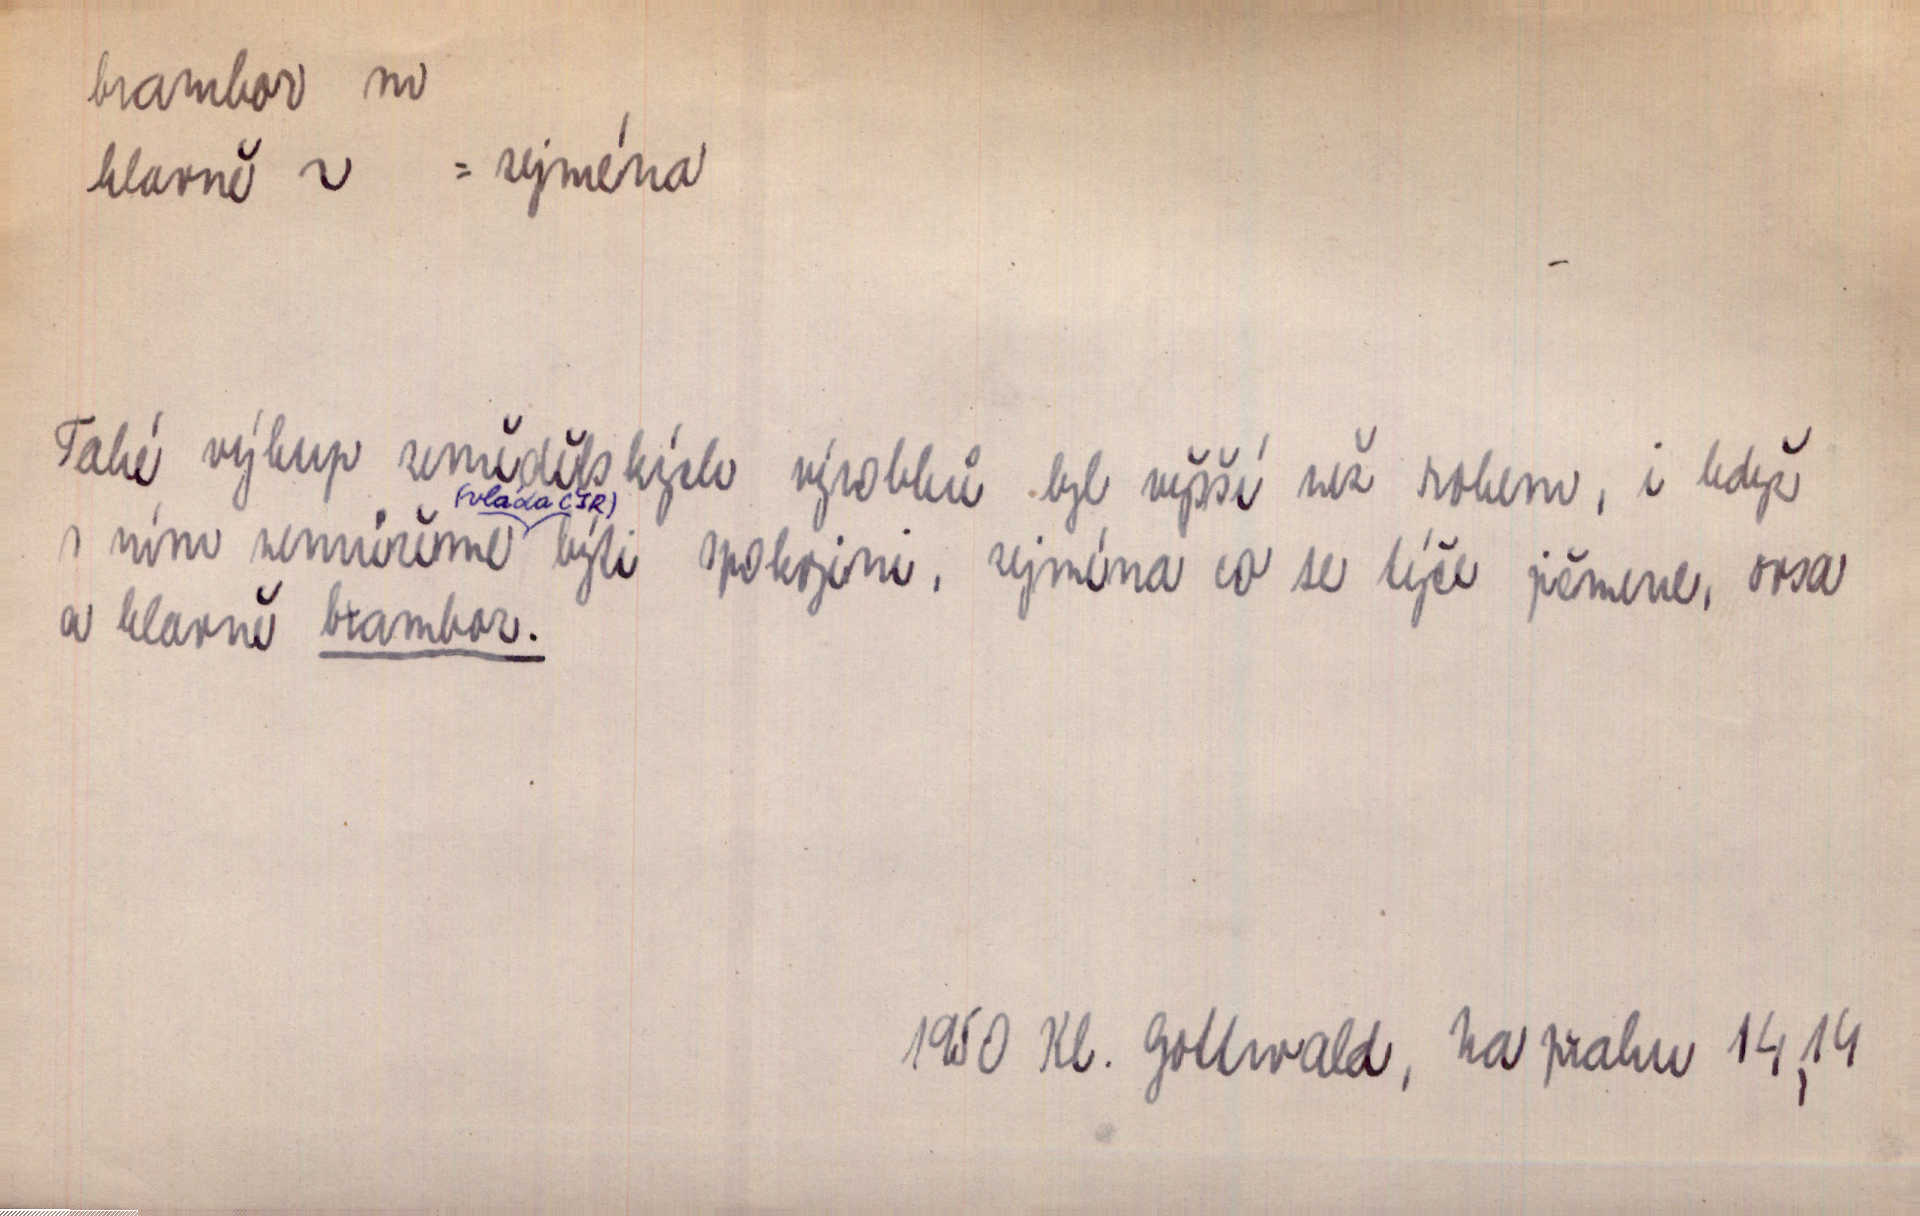 brambor m
hlavně ~ = zejména
Také výkup zemědělských výrobků byl vyšší než rokem, i když
(vláda ČSR)
s ním nemůžeme býti spokojeni, zejména co se týče ječmene, ovsa
a hlavně brambor.
1950 Kl. Gottwald, Na prahu 14,14